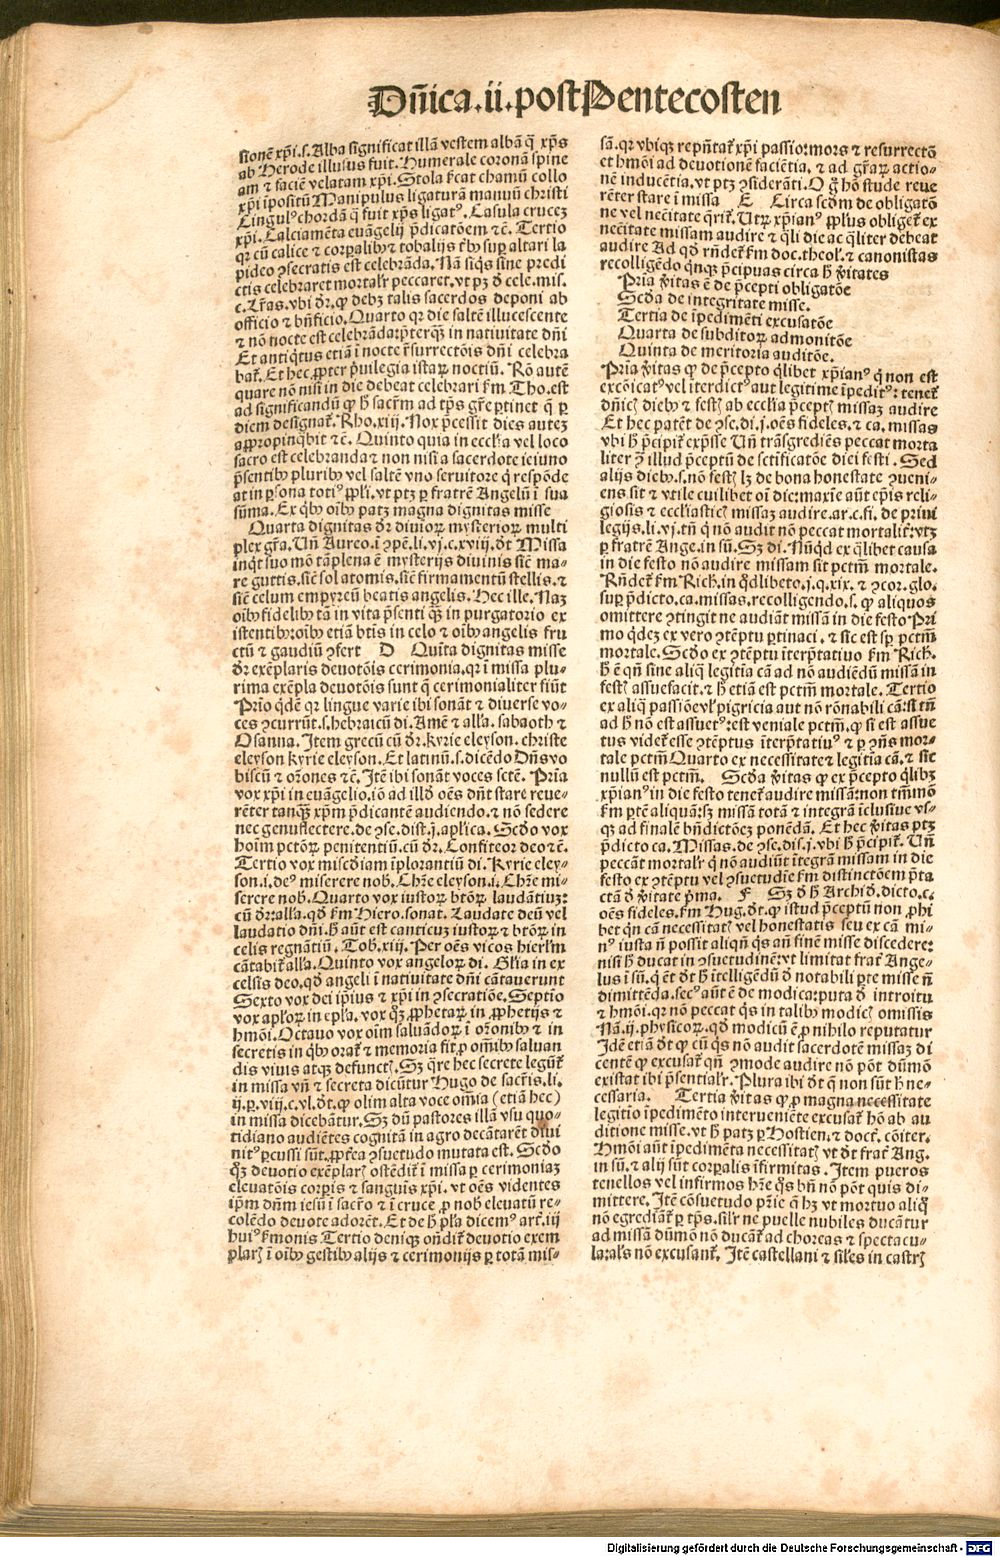 Dñica.ii.post Pentecosten
sionē xp̄i.s. Alba significat illā vestem albā q̄ xp̄s
ab Herode illusus fuit. Humerale coronā spine
am ⁊ faciē velatam xp̄i. Stola ẜcat chamū collo
xp̄i īpositū Manipulus ligaturā manuū christi
Cingulꝰ chordā q̄ fuit xp̄s ligatꝰ. Casula crucez
xp̄i. Calciamēta euāgelij p̄dicatōem ⁊č. Tertio
qr cū calice ⁊ corꝑalibꝰ ⁊ tobalijs
pideo ꝯsecratis est celebrāda. Nā siq̄s sine predi
ctis celebraret mortalr̄ peccaret. vt pꝫ ď cele. mis.
c. Lr̄as. vbi dr̄. ꝙ debꝫ talis sacerdos deponi ab
officio ⁊ bn̄ficio. Quarto qr die saltē illucescente
⁊ nō nocte est celebrāda: p̄terqꝫ in natiuitate dn̄i
Et antiqͥtus etiā ī nocte r̄surrectōis dn̄i celebra
bat̄. Et hec ꝓpter p̄uilegia istaꝝ noctiū. Rō autē
quare nō nisi in die debeat celebrari ẜm Tho. est
ad significandū ꝙ h̄ sacr̄m ad tp̄s gr̄e ꝑtinet q̄ ꝑ
diem designat̄. Rho. xiij. Nox p̄cessit dies autez
appropinqͣbit ⁊č. Quinto quia in ecclīa vel loco
sacro est celebranda ⁊ non nisi a sacerdote ieiuno
p̄sentibꝰ pluribꝰ vel saltē vno seruitore q̇ respōde
at in ꝑsona totiꝰ ppl̄i. vt ptꝫ ꝑ fratrē Angelū ī sua
sūma. Ex qͥbꝰ oībꝰ patꝫ magna dignitas misse
Quarta dignitas dr̄ diuinoꝝ mysterioꝝ multi
plex gr̄a. Vn̄ Aureo. ī ꝯpē. li. vj. c. xviij. dt̄ Missa
inqͥt suo mō tā plena ē mysterijs diuinis siē ma-
re guttis. siē sol atomis. siē firmamentū stellis. ⁊
siē celum empyreū beatis angelis. Hec ille. Naꝫ
oībꝰ fidelibꝰ tā in vita p̄senti qꝫ in purgatorio ex
istentibꝰ: oībꝰ etiā btīs in celo ⁊ oībꝰ angelis fru
ctū ⁊ gaudiū ꝯfert D Quīta dignitas misse
dr̄ exēplaris deuotōis cerimonia. qr ī missa plu-
rima exēpla deuotōis sunt q̄ cerimonialiter fiūt
Prīo qͥdē qr lingue varie ibi sonāt ⁊ diuerse vo-
ces ꝯcurrūt. s. hebraicū di. Amē ⁊ allā. sabaoth ⁊
Osanna. Item grecū cū dr̄. kyrie eleyson. christe
eleyson kyrie eleyson. Et latinū. s. dicēdo Dn̄s vo
biscū ⁊ or̄ones ⁊č. Itē ibi sonāt voces sctē. Prīa
vox xp̄i in euāgelio. iō ad illd̄ oēs dn̄t stare reue-
rēter tanqꝫ xp̄m p̄dicantē audiendo. ⁊ nō sedere
nec genuflectere. de ꝯse. dist. j. apl̄ica. Scd̄o vox
hoīm pctōꝝ penitentiū. cū dr̄. Confiteor deo ⁊č.
Tertio vox misc̄diam īplorantiū di. Kyrie eley-
son. i. deꝰ miserere nob̄. Chr̄e eleyson. i. Chr̄e mi-
serere nob̄. Quarto vox iustoꝝ btōꝝ laudātiuꝫ:
cū dr̄: allā. qd̄ ẜm Hiero. sonat. Laudate deū vel
laudatio dn̄i. h̄ aūt est canticuꝫ iustoꝝ ⁊ btōꝝ in
celis regnātiū. Tob. xij. Per oēs vicos hierl̄m
cātabit̄ allā. Quinto vox angeloꝝ di. Gl̄ia in ex
celsis deo. qd̄ angeli ī natiuitate dn̄i cātauerunt
Sexto vox dei ip̄ius ⁊ xp̄i in ꝯsecratiōe. Septio
vox apl̄oꝝ in epl̄a. vox qꝫ ꝓphetaꝝ in ꝓphetijs ⁊
hmōi. Octauo vox oīm saluādoꝝ ī or̄onibꝰ ⁊ in
secretis in qͥbꝰ orat̄ ⁊ memoria fit ꝓ omībꝰ saluan
dis viuis atqꝫ defunctꝭ. Sꝫ qͣre hec secrete legūt̄
in missa vn̄ ⁊ secreta dicūtur Hugo de sacr̄is. li.
ij. ꝑ. viij. c. vl. dt̄. ꝙ olim alta voce omīa (etiā hec)
in missa dicebātur. Sꝫ dū pastores illā vsu quo-
tidiano audiētes cognitā in agro decātarēt diui
nitꝰ ꝑcussi sūt. ꝓptea ꝯsuetudo mutata est. Scd̄o
qꝫ deuotio exēplarꝭ ostēdit̄ ī missa ꝑ cerimoniaꝫ
eleuatōis corꝑis ⁊ sanguīs xp̄i. vt oēs videntes
ip̄m dn̄m iesū ī sacr̄o ⁊ ī cruce ꝓ nob̄ eleuatū re-
colēdo deuote adorēt. Et de h̄ pl̄a dicemꝰ art. iij
huiꝰ ẜmonis Tertio deniqꝫ on̄dit̄ deuotio exem
plarꝭ ī oībꝰ gestibꝰ alijs ⁊ cerimonijs ꝑ totā mis-
sā. qr vbiqꝫ rep̄ntat̄ xp̄i passio: mors ⁊ resurrectō
et hmōi ad deuotionē faciētia. ⁊ ad gr̄aꝝ actio-
nē inducētia. vt ptꝫ ꝯsiderāti. O gͦ hō stude reue
rēter stare ī missa E Circa scd̄m de obligatō
ne vel necītate q̄rit̄. Vtꝝ xp̄ianꝰ ppl̄us obliget̄ ex
necītate missam audire ⁊ qͣli die ac qͣliter debeat
audire Ad qd̄ rn̄det̄ ẜm doc. theol. ⁊ canonistas
recolligēdo qͥnqꝫ p̄cipuas circa h̄ v̄itates
Prīa v̄itas ē de p̄cepti obligatōe
Scd̄a de integritate misse.
Tertia de īpedimēti excusatōe
Quarta de subditoꝝ admonitōe
Quinta de meritoria auditōe.
Prīa v̄itas ꝙ de p̄cepto qͥlibet xp̄ianꝰ q̇ non est
excōicatꝰ vel īterdictꝰ aut legitime īpeditꝰ: tenet̄
dn̄icꝭ diebꝰ ⁊ festꝭ ab ecclīa p̄ceptꝭ missaꝫ audire
Et hec patēt de ꝯse. di. j. oēs fideles. ⁊ ca. missas
vbi h̄ p̄cipit̄ exp̄sse Vn̄ trāsgrediēs peccat morta
liter ꝯ illud p̄ceptū de sctificatōe diei festi. Sed
alijs diebꝰ. s. nō festꝭ lꝫ de bona honestate ꝯueni-
ens sit ⁊ vtile cuilibet oī die: maxīe aūt ep̄is reli-
giosis ⁊ ecclīasticꝭ missaꝫ audire. ar. c. fi. de priui
legijs. li. vj. tn̄ q̇ nō audit nō peccat mortalit̄: vtꝫ
ꝑ fratrē Ange. in sū. Sꝫ di. Nūqͥd ex qͣlibet causa
in die festo nō audire missam sit pctm̄ mortale.
Rn̄det̄ ẜm Rich. in qͦdlibeto. j. q. xix. ⁊ ꝯcor. glo.
suꝑ p̄dicto. ca. missas. recolligendo. s. ꝙ aliquos
omittere ꝯtingit ne audiāt missā in die festo Pri
mo qͥdeꝫ ex vero ꝯtēptu ꝑtinaci. ⁊ sic est sꝑ pctm̄
mortale. Scd̄o ex ꝯtēptu īterp̄tatiuo ẜm Rich.
h̄ ē qn̄ sine aliqͣ legitīa cā ad nō audiēdū missā in
festꝭ assuefacit. ⁊ h̄ etiā est pctm̄ mortale. Tertio
ex aliqͣ passiōe vl̓ pigricia aut nō rōnabili cā: si tn̄
ad h̄ nō est assuetꝰ: est veniale pctm̄. ꝙ si est assue
tus videt̄ esse ꝯtēptus īterp̄tatiuꝰ ⁊ ꝑ ꝯn̄s mor-
tale pctm̄ Quarto ex necessitate ⁊ legitīa cā. ⁊ sic
nullū est pctm̄. Scd̄a v̄itas ꝙ ex p̄cepto qͥlibꝫ
xp̄ianꝰ in die festo tenet̄ audire missā: non tm̄mō
ẜm ptē aliquā: sꝫ missā totā ⁊ integrā īclusiue vs-
qꝫ ad finalē bn̄dictōeꝫ ponēdā. Et hec v̄itas ptꝫ
p̄dicto ca. Missas. de ꝯse. dis. j. vbi h̄ p̄cipit̄. Vn̄
peccāt mortalr̄ q̇ nō audiūt ītegrā missam in die
festo ex ꝯtēptu vel ꝯsuetudīe ẜm distinctōem p̄ta
ctā ď v̄itate p̄ma. F Sꝫ ď h̄ Archid̄. dicto. c.
oēs fideles. ẜm Hug. dt̄. ꝙ istud p̄ceptū non ꝓhi
bet qn̄ cā necessitatꝭ vel honestatis seu ex cā mi-
nꝰ iusta n̄ possit aliqn̄ qͥs an̄ finē misse discedere:
nisi h̄ ducat in ꝯsuetudinē: vt limitat frat̄ Ange-
lus ī sū. q̇ ēt dt̄ h̄ ītelligēdū ď notabili ꝑte misse n̄
dimittēda. secꝰ aūt ē de modica: puta ď introitu
⁊ hmōi. qr nō peccat qͥs in talibꝰ modicꝭ omissis
Nā. ij. physicoꝝ. qd̄ modicū ē ꝓ nihilo reputatur
Idē etiā dt̄ ꝙ cū qͥs nō audit sacerdotē missaꝫ di
centē ꝙ excusat̄ qn̄ ꝯmode audire nō pōt dūmō
existat ibi p̄sentialr̄. Plura ibi dt̄ q̄ non sūt h̄ ne-
cessaria. Tertia v̄itas ꝙ ꝓ magna necessitate
legitio īpedimēto interueniēte excusat̄ hō ab au
ditione misse. vt h̄ patꝫ ꝑ Hostien. ⁊ doct. cōiter.
Hmōi aūt īpedimēta necessitatꝭ vt dt̄ frat̄ Ang.
in sū. ⁊ alij sūt corꝑalis īfirmitas. Item pueros
tenellos vel infirmos hr̄e qͦs bn̄ nō pōt quis di-
mittere. Itē cōsuetudo pr̄ie q̄ hꝫ vt mortuo aliqͦ
nō egrediāt̄ ꝑ tp̄s. silr̄ ne puelle nubiles ducātur
ad missā dūmō nō ducāt̄ ad choreas ⁊ spectacu-
la: als nō excusant̄. Itē castellani ⁊ siles in castrꝭ
Digitalisierung gefördert durch die Deutsche Forschungsgemeinschaft - DFG